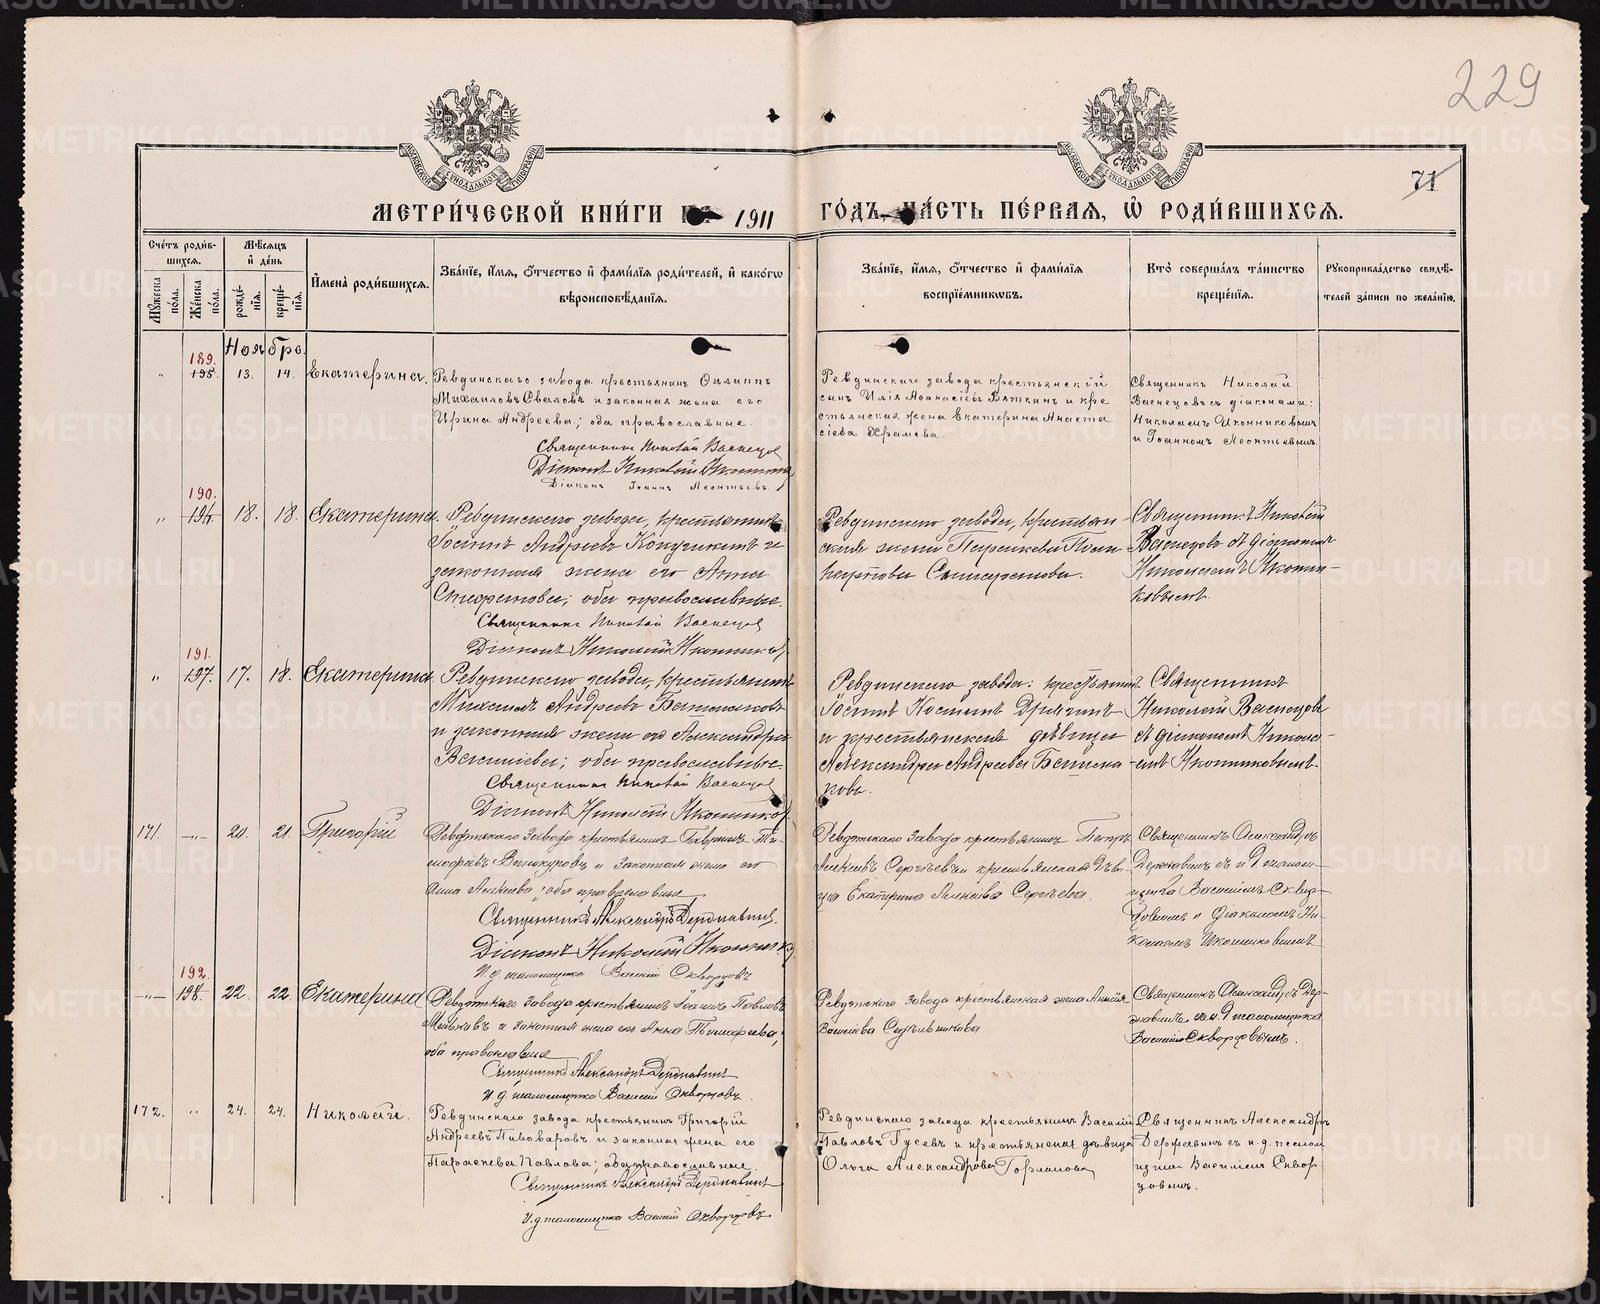 229
71
МЕТРИ́ЧЕСКОЙ КНИ́ГИ НА 1911 ГО́ДЪ, ЧА́СТЬ ПЕ́РВАЯ, Ѡ҆ РОДИ́ВШИХСЯ.
Сче́тъ роди́вшихся.
Мꙋ́жеска по́ла.
Же́нска по́ла.
Мѣ́сяцъ и҆ де́нь
рожде́нїя.
креще́нїя.
И҆мена̀ роди́вшихся.
Зва́нїе, и҆́мя, ѻ҆́тчество и҆ фами́лїя роди́телей, и҆ како́гѡ вѣроисповѣ́данїя.
Зва́нїе, и҆́мя, ѻ҆́тчество и҆ фами́лїя воспрїе́мникѡвъ.
Кто̀ соверша́лъ та́инство креще́нїя.
Рꙋкоприкла́дство свидѣ́телей за́писи по жела́нїю.
Ноябрь.
189.
195. 13. 14. Екатерина.
Ревдинскаго завода крестьянинъ Филиппъ
Михаиловъ и законная жена его
Ирина Андреева; оба православные.
Священникъ Николай Васнецовъ
Дiаконъ Николай Иконниковъ
Дiаконъ Iоаннъ Леонтьевъ.
Ревдинскаго завода крестьянскій
сынъ Илія Аѳанасіевъ Вяткинъ и кре
стьянская жена Екатерина Анаста
сіева Храмова.
Священникъ Николай
Васнецовъ съ дiаконами:
Николаемъ Иконниковымъ
и Іоанномъ Леонтьевымъ.
190.
196. 18. 18. Екатерина
Ревдинскаго завода, крестьянинъ
Іоаннъ Андреевъ и
законная жена его Анна
Стефанова; оба православные.
Священникъ Николай Васнецовъ
Дiаконъ Николай Иконниковъ
Ревдинскаго завода, крестьян
ская жена Параскева
Священникъ Николай
Васнецовъ съ дiакономъ
Николаемъ Иконни-
ковымъ.
191.
197. 17. 18. Екатерина
Ревдинскаго завода, крестьянинъ
Михаилъ Андреевъ
и законная жена его Александра
Василіева; оба православные.
Священникъ Николай Васнецовъ
Дiаконъ Николай Иконниковъ
Ревдинскаго завода: крестьянинъ
Іоаннъ Дрягинъ
и крестьянская дѣвица
Александра Андреева
Священникъ
Николай Васнецовъ
съ дiакономъ Никола-
емъ Иконниковымъ.
171. 20. 21. Григорій
Ревдинскаго завода крестьянинъ Гавріилъ Ти-
моѳеевъ Винокуровъ и законная жена его
Анна Алексѣева; оба православные
Священникъ Александръ Державинъ.
Дiаконъ Николай Иконниковъ
И.д. псаломщика Василій Скворцовъ
Ревдинскаго завода крестьянинъ Петръ
Алексѣевъ Сергѣевъ и крестьянская дѣви-
ца Екатерина Алексѣева Сергѣева.
Священникъ Александръ
Державинъ съ и.д. псалом-
щика Василіемъ Сквор-
цовымъ и дiакономъ Ни-
колаемъ Иконниковымъ
192.
198. 22. 22. Екатерина
Ревдинскаго завода крестьянинъ Іоаннъ Павловъ
и законная жена его Анна Тимоѳеева,
оба православные
Священникъ Александръ Державинъ
И.д. псаломщика Василій Скворцовъ.
Ревдинскаго завода крестьянская жена
Василіева
Священникъ Александръ Дер-
жавинъ съ и.д. псаломщика
Василіемъ Скворцовымъ.
172. 24. 24. Николай.
Ревдинскаго завода крестьянинъ Григорій
Андреевъ Пивоваровъ и законная жена его
Параскева Павлова; оба православные.
Священникъ Александръ Державинъ
И.д. псаломщика Василій Скворцовъ
Ревдинскаго завода крестьянинъ Василій
Павловъ Гусевъ и крестьянская дѣвица
Ольга Александрова Горланова
Священникъ Александръ
Державинъ съ и.д. псалом
щика Василіемъ Сквор
цовымъ.
METRIKI.GASO-URAL.RU